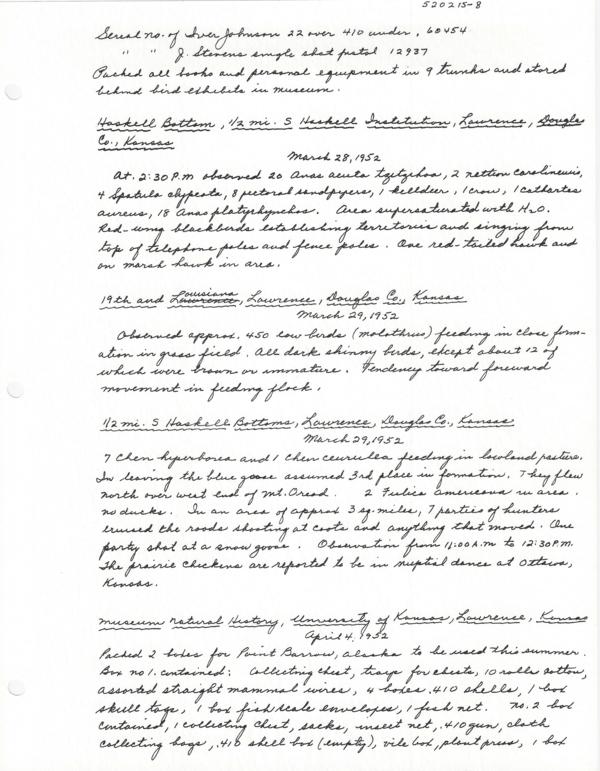 520215-8
Serial no. of Iver Johnson 22 over 410 under, 60454
" " J. Stevens single shot pistol 12937
Packed all books and personal equipment in 9 trunks and stored
behind bird exhibits in museum.
Haskell Bottom, 1/2 mi. S Haskell Institution, Lawrence, Douglas
Co., Kansas
March 28, 1952
At 2:30 P.M observed 20 Anas acuta tzitzihoa, 2 nettion carolinensis,
4 Spatula clypeata, 8 pectoral sandpipers, 1 killdeer, 1 crow, 1 cathartes
aureus, 18 Anas platyrhynchos. Area supersaturated with H2O.
Red-wing blackbirds establishing territories and singing from
top of telephone poles and fence poles. One red-tailed hawk and
on marsh hawk in area.
19th and Lawrence Louisiana, Lawrence, Douglas Co., Kansas
March 29, 1952
Observed approx. 450 cow birds (molothrus) feeding in close form-
ation in grass field. All dark skinny birds, except about 12 of
which were brown or immature. Tendency toward foreward
movement in feeding flock.
1/2 mi. S Haskell Bottoms, Lawrence, Douglas Co., Kansas
March 29, 1952
7 Chen hyperborea and 1 Chen ceurulea feeding in lowland pasture.
In leaving the blue goose assumed 3rd place in formation. They flew
north over west end of Mt. Oread. 2 Fulica americana in area.
no ducks. In an area of approx 3 sq. miles, 7 parties of hunters
cruised the roads shooting at coots and anything that moved. One
party shot at a snow goose. Observation from 11:00 A.m to 12:30 P.M.
The prairie chickens are reported to be in nuptial dance at Ottawa,
Kansas.
Museum natural History, University of Kansas, Lawrence, Kansas
April 4, 1952
Packed 2 boxes for Point Barrow, Alaska to be used this summer.
Box no 1. contained: Collecting chest, trays for chests, 10 rolls cotton,
assorted straight mammal wires, 4 boxes .410 shells, 1 box
skull tags, 1 box fish scale envelopes, 1 fish net. No. 2 box
contained, 1 collecting chest, sacks, insect net, .410 gun, cloth
collecting bags, .410 shell box (empty), vile box, plant press, 1 box